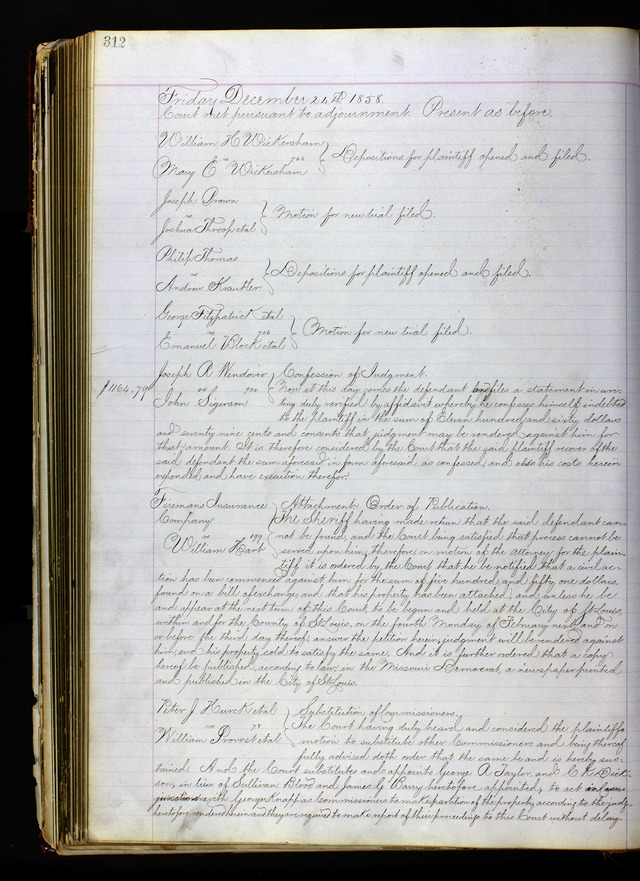 312
Friday December 24th 1858.
Court met pursuant to adjournment. Present as before.
William H. Wickersham
vs 702 } Depositions for plaintiff opened and filed.
Mary E. Wickersham
Joseph Brown
vs } Motion for new trial filed.
Joshua Throop et al
Philip Thomas
vs } Depositions for plaintiff opened and filed.
Andrew Krautler
George Fitzpatrick et al
vs } Motion for new trial filed.
Emanuel Block et al
Joseph R Wendover } Confession of Judgment.
$1164.79 vs Now at this day comes the defendant and files a statement in wri-
John Sigerson ting duly verified by affidavit whereby he confesses himself indebted
to the plaintiff in the sum of Eleven hundred and sixty dollars
and seventy nine cents and consents that judgment may be rendered against him for
that amount. It is therefore considered by the Court that the said plaintiff recover of the
said defendant the sum aforesaid in form aforesaid as confessed, and also his costs herein
expended, and have execution therefor.
Firemans Insurance } Attachment. Order of Publication.
Company The Sheriff having made return that the said defendant can
vs 199 not be found, and the Court being satisfied that process cannot be
William Hart served upon him, therefore on motion of the attorney for the plain-
tiff it is ordered by the Court that he be notified that a civil ac-
tion has been commenced against him for the sum of five hundred and fifty one dollars,
found on a bill of exchange, and that his property has been attached, and unless he be
and appear at the next term of this Court, to be begun and held at the City of St. Louis,
within and for the County of St Louis, on the fourth Monday of February next, and on
or before the third day thereof answer the petition herein, judgment will be rendered against
him, and his property sold to satisfy the same. And it is further ordered that a copy
hereof be published, according to law, in the Missouri Democrat, a newspaper printed
and published in the City of St Louis.
Peter J. Hurck et al } Substitution of Commissioners.
vs The Court having duly heard and considered the plaintiffs
William Provost et al motion to substitute other Commissioners and being thereof
fully advised doth order that the same be and is hereby sus-
tained. And the Court substitutes and appoints George R Taylor and C K Dick-
son, in lieu of Sullivan Blood and James G Barry heretofore appointed, to act in con-
junction with George Knapp as Commissioners to make partition of the property according to the judg
heretofore rendered herein and they are required to make report of their proceedings to this Court without delay.